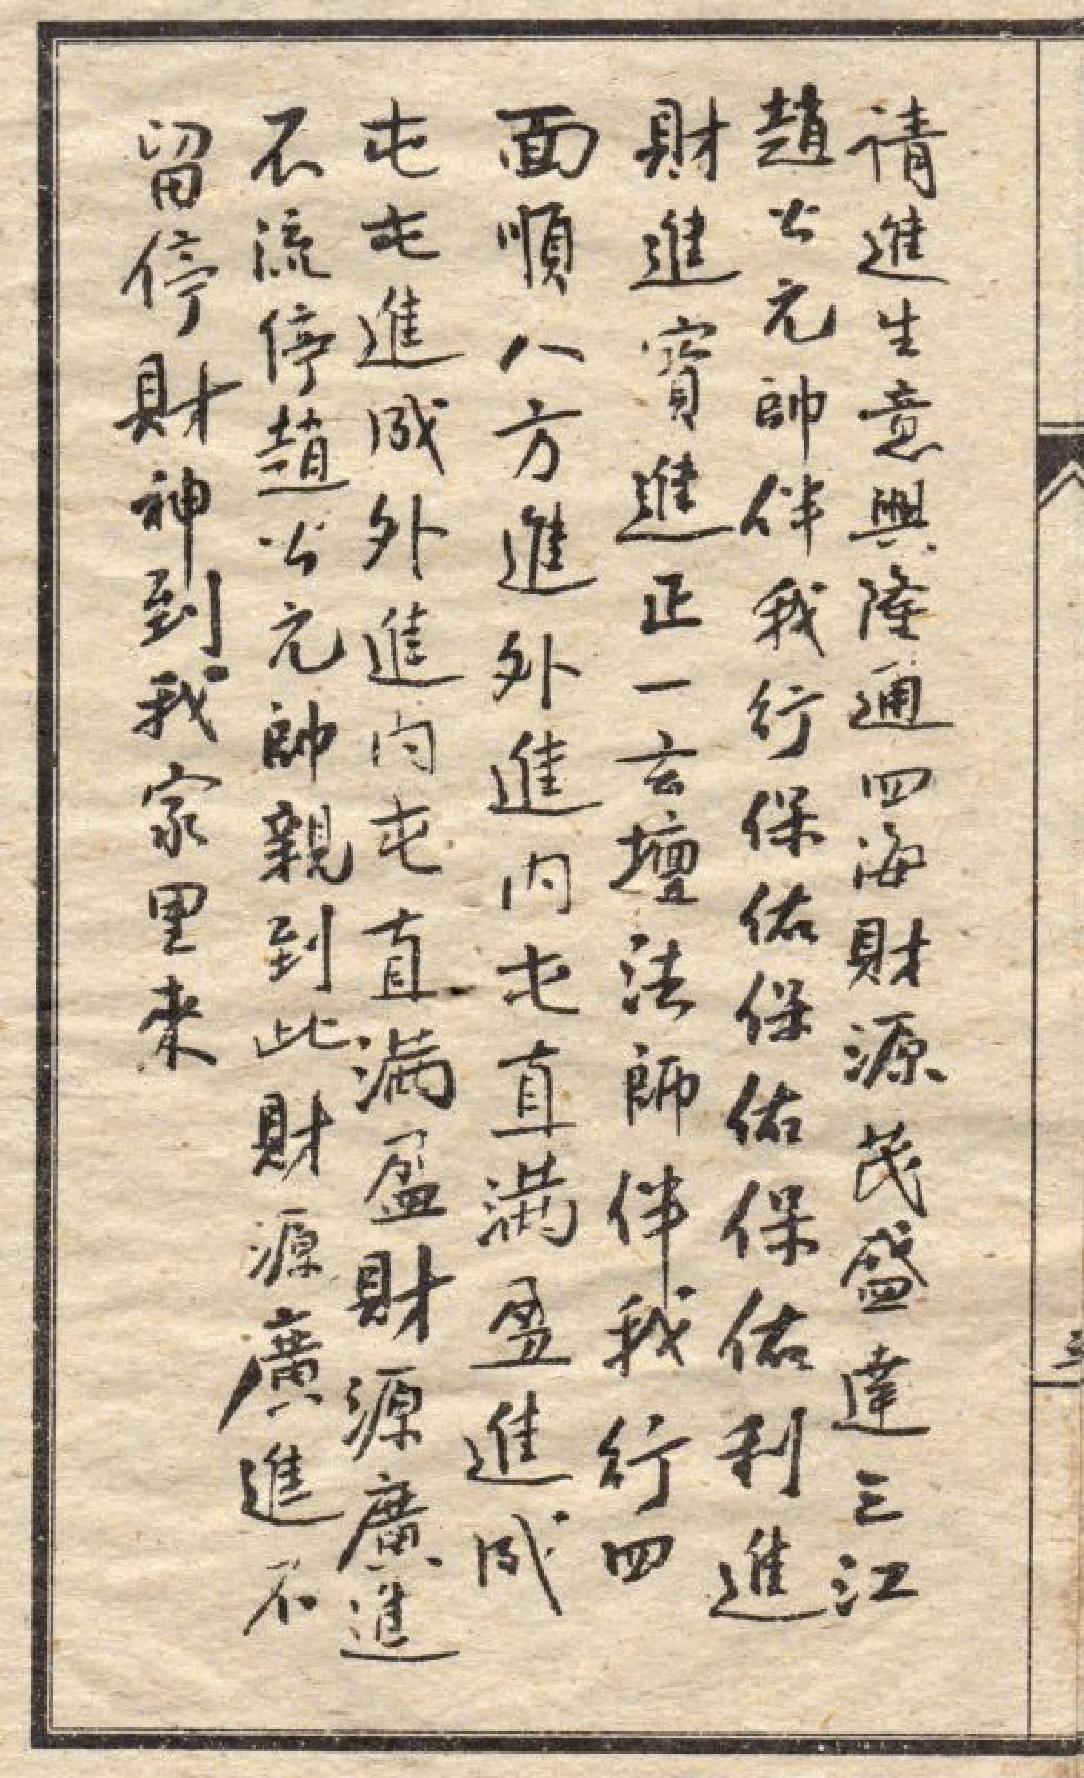 請進生意興隆通四海財源茂盛達三江
趙公元帥伴我行保佑保佑保佑利進
財進寶進正一玄壇法師伴我行四
面順八方進外進內屯直滿盈進成
屯屯進成外進內屯直滿盈財源廣進
不流停趙公元帥親到此財源廣進不
留停財神到我家里來